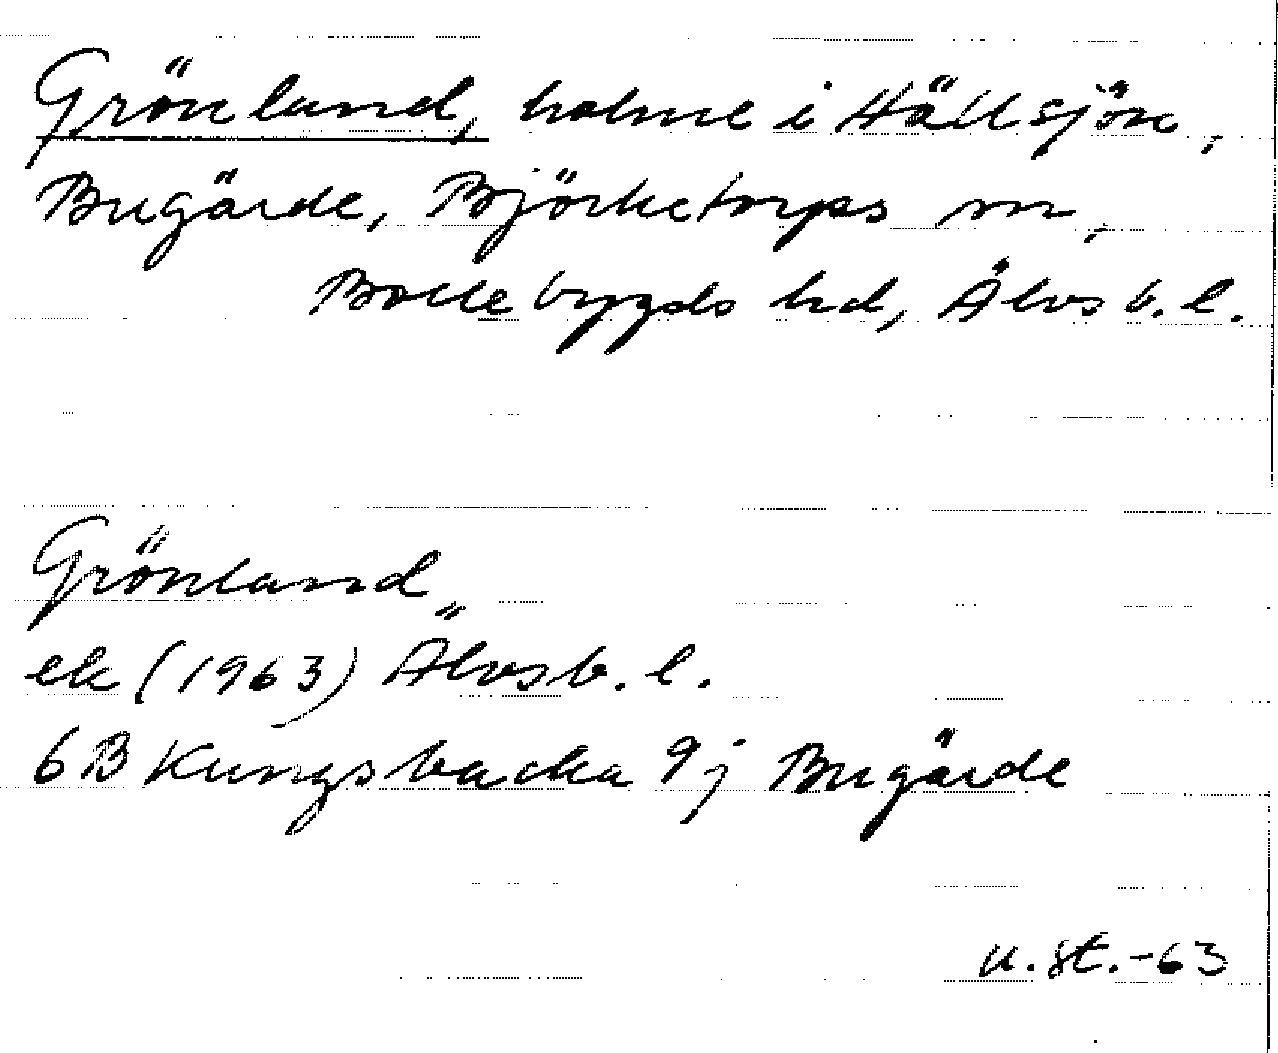 Grönland, holme i Hällsjön,
Bugärde, Björketorps sn,
Bollebygds hd, Älvsb. l.
Grönland
ek (1963) Älvsb. l.
6B Kungsbacka 9j Bugärde
u. st. -63